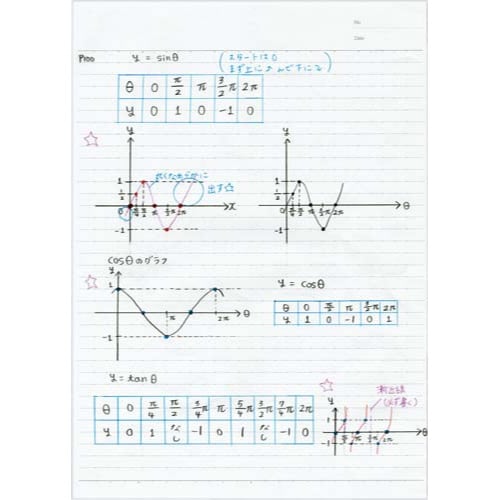 No.
Date
P100 y = sinθ (スタートは0
まず上にすんで下にて)
θ 0 π/2 π 3/2π 2π
y 0 1 0 -1 0
y
1
1/2
0 π/6 π/2 π 3/2π 2π x
-1
出す☆
y
1
1/2
π/6 π/2 π 3/2π 2π θ
-1
cosθのグラフ
y
1
π 2π θ
-1
y = cosθ
θ 0 π/2 π 3/2π 2π
y 1 0 -1 0 1
y = tanθ
θ 0 π/4 π/2 3/4π π 5/4π 3/2π 7/4π 2π
y 0 1 なし -1 0 1 なし -1 0
漸近線
(必ず書く)
y
1
π/2 π 3/2π 2π θ
-1